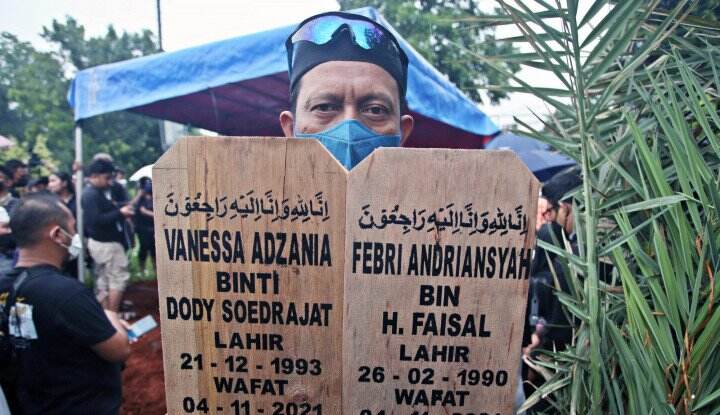 إِنَّا لِلَّهِ وَإِنَّا إِلَيْهِ رَاجِعُوْنَ
VANESSA ADZANIA
BINTI
DODY SOEDRAJAT
LAHIR
21 - 12 - 1993
WAFAT
04 - 11 - 2021
إِنَّا لِلَّهِ وَإِنَّا إِلَيْهِ رَاجِعُوْنَ
FEBRI ANDRIANSYAH
BIN
H. FAISAL
LAHIR
26 - 02 - 1990
WAFAT